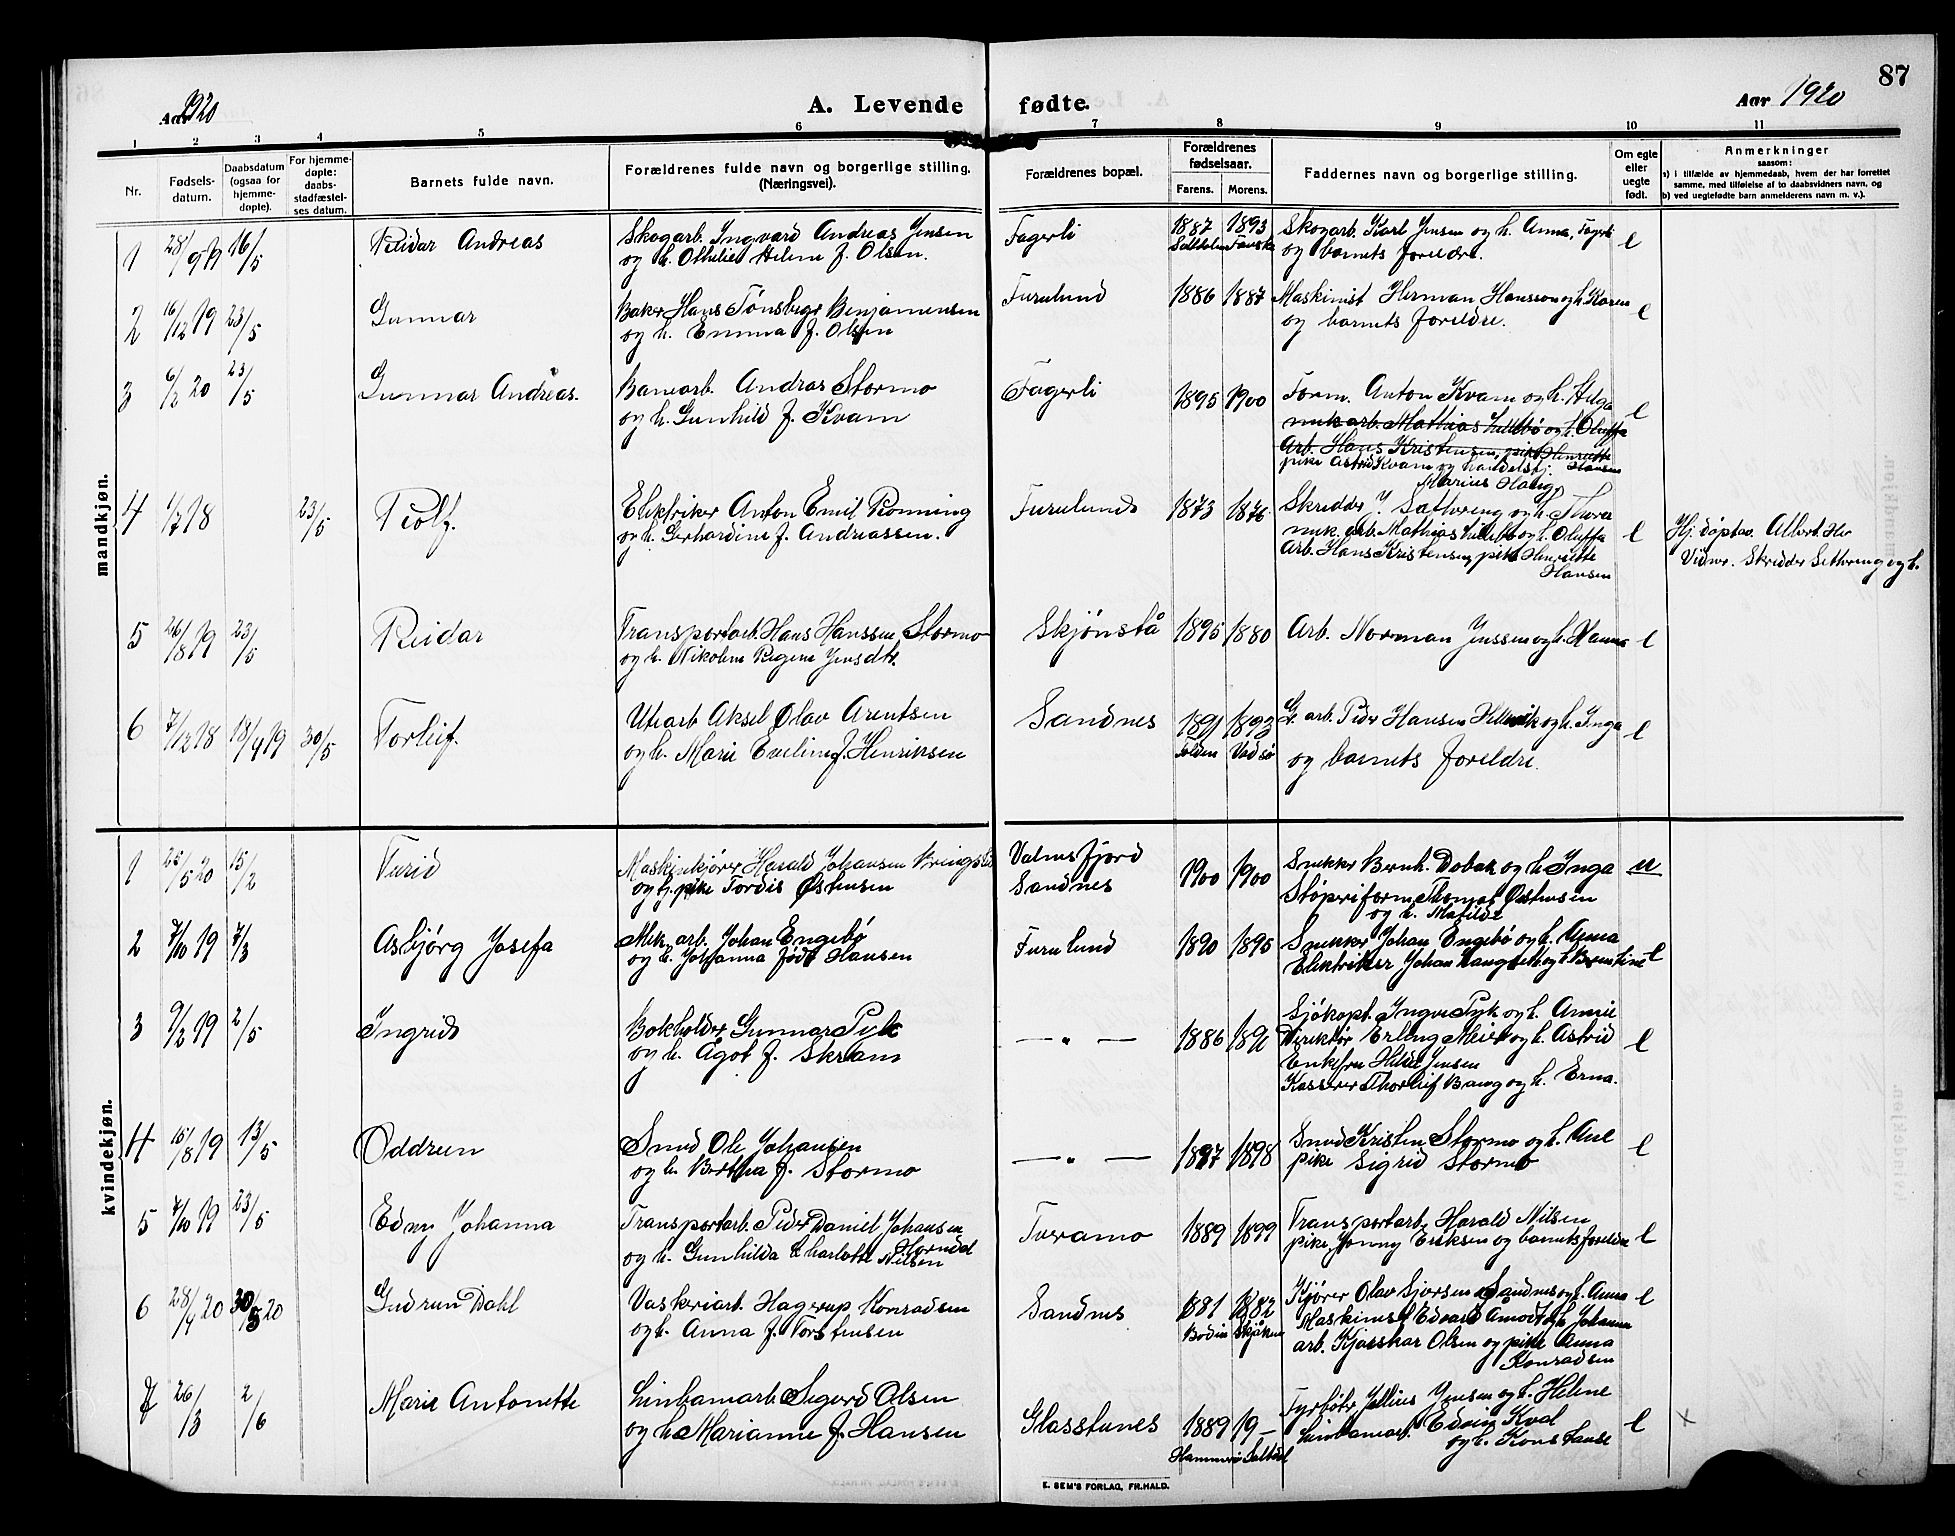 87
Aar 1920
A. Levende fødte.
Aar 1920
1 2 3 4 5 6 7 8 9 10 11
Nr.
Fødsels-
datum.
Daabsdatum
(ogsaa for
hjemme-
døpte).
For hjemme-
døpte:
daabs-
stadfæstel-
ses datum.
Barnets fulde navn.
Forældrenes fulde navn og borgerlige stilling.
(Næringsvei).
Forældrenes bopæl.
Forældrenes
fødselsaar.
Farens. Morens.
Faddernes navn og borgerlige stilling.
Om egte
eller
uegte
født.
Anmerkninger
saasom:
a) i tilfælde av hjemmedaab, hvem der har forrettet
samme, med tilføielse af to daabsvidners navn, og
b) ved uegtefødte barn anmelderens navn m. v.).
mandkjøn.
1 28/9 19 16/5 Reidar Andreas Skogarb. Ingvard Andreas Jensen Fagerli 1887 1893 Skogarb. Karl Jensen og h. Anna, Fagerli e
og h. Othelie Helene f. Olsen. Saltdalen Fauske og barnets foreldre.
2 16/12 19 23/5 Gunnar Baker Hans Tønsberg Benjaminsen Furulund 1886 1887 Maskinist Herman Hansson og h. Karen e
og h. Emma f. Olsen og barnets foreldre.
3 6/2 20 23/5 Gunnar Andreas. Banearb. Andras Stormo Fagerli 1895 1900 Form. Anton Kvam og h. Helga e
og h. Gunhild f. Kvam mek arb. Mathias Lillebø og h. Oluffa
Arb. Hans Kristensen, pike Henriette
pike Astrid Kvam og handelsbj. Hansen
Marius Haug.
4 1/7 18 23/5 Rolf. Elektriker Anton Emil Rønning Furulund 1873 1876 Skredder J. Sættereng og h. Thora e Hj. døpt av Albert Her
og h. Gerhardine f. Andreassen. mek. arb. Mathias Lillebø og h. Oluffa Vidner. Skredder Settereng og h.
Arb. Hans Kristensen, pike Henriette
Hansen
5 26/8 19 23/5 Reidar Transportarb. Hans Hanssen Stormo Skjønstå 1895 1880 Arb. Norman Jenssen og h. Hanna e
og h. Nikoline Regine Jensdtr.
6 7/12 18 18/9 19 30/5 Torleif. Utearb Aksel Olav Arentsen Sandnes 1891 1893 Gr. arb. Peder Hansen Hellevik og h. Inga e
og h. Marie Eveline f. Henriksen Folden Vadsø og barnets foreldre.
kvindekjøn.
1 25/5 20 15/2 Turid Maskinkjører Harald Johansen Kringsli Valnesfjord 1900 1900 Snekker Bernh. Dobak og h. Inga u
og pike Tordis Østensen Sandnes Støperiform. Thomas Østensen
og h. Matilde
2 7/10 19 7/3 Asbjørg Josefa Mek. arb. Johan Engebø Furulund 1890 1895 Snekker Johan Engebø og h. Anna e
og h. Johanna født Hansen Elektriker Johan Langseth og h. Berntine
3 9/2 19 2/5 Ingrid Bokholder Gunnar Pyk — „ — 1886 1891 Sjøkapt. Ingve Pyk og h. Annie e
og h. Ågot f. Skram Direktør Erling Meier og h. Astrid
Enkefru Hilda Jensen
Kasserer Thorleif Bang og h. Erna.
4 15/8 19 13/5 Oddrun Smed Ole Johansen — „ — 1897 1898 Smed Kristen Stormo og h. Ane e
og h. Bertha f. Stormo pike Sigrid Stormo
5 7/10 19 23/5 Edny Johanna Transportarb. Peder Daniel Johansen Furamo 1889 1899 Transportarb. Harald Nilsen e
og h. Gunhilda Charlotte Nilsen pike Jenny Eriksen og barnets foreldre
6 28/4 20 30/5 20 Gudrun Dahl Vaskeriarb. Hagerup Konradsen Sandnes 1881 1882 Kjører Olav Sjorsen Sandnes og h. Anna e
og h. Anna f. Torstensen Bodin Skjåken Maskinist Edvard Amodt og h. Johanna
arb. Kjerskar Olsen og pike Anna
Konradsen
7 26/3 2/6 Marie Antonette Linbanearb. Sigurd Olsen Glasstunes 1889 19– Fyrbøter Jellius Jensen og h. Helene e x
og h. Marianne f. Hansen Hammerø Saltdal Linbanearb. Edvin Kval
og h. Konstanse
E. SEM'S FORLAG, FR.HALD.